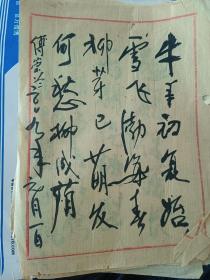 牛年初复始
雪飞渤海春
柳芽已萌发
何愁柳成荫
傅家
二〇〇九年元月一日